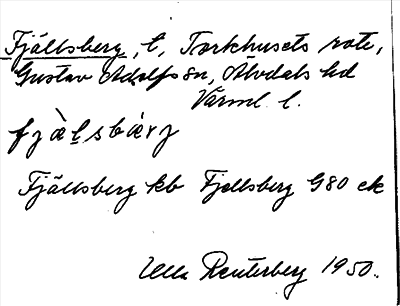 Fjällsberg, t, Torkhusets rote,
Gustav Adolfs sn, Älvdals hd
Värml. l.
fjä̀l̠sbárj
Fjällsberg kb Fjellsberg G80 ek
Ulla Reuterberg 1950.